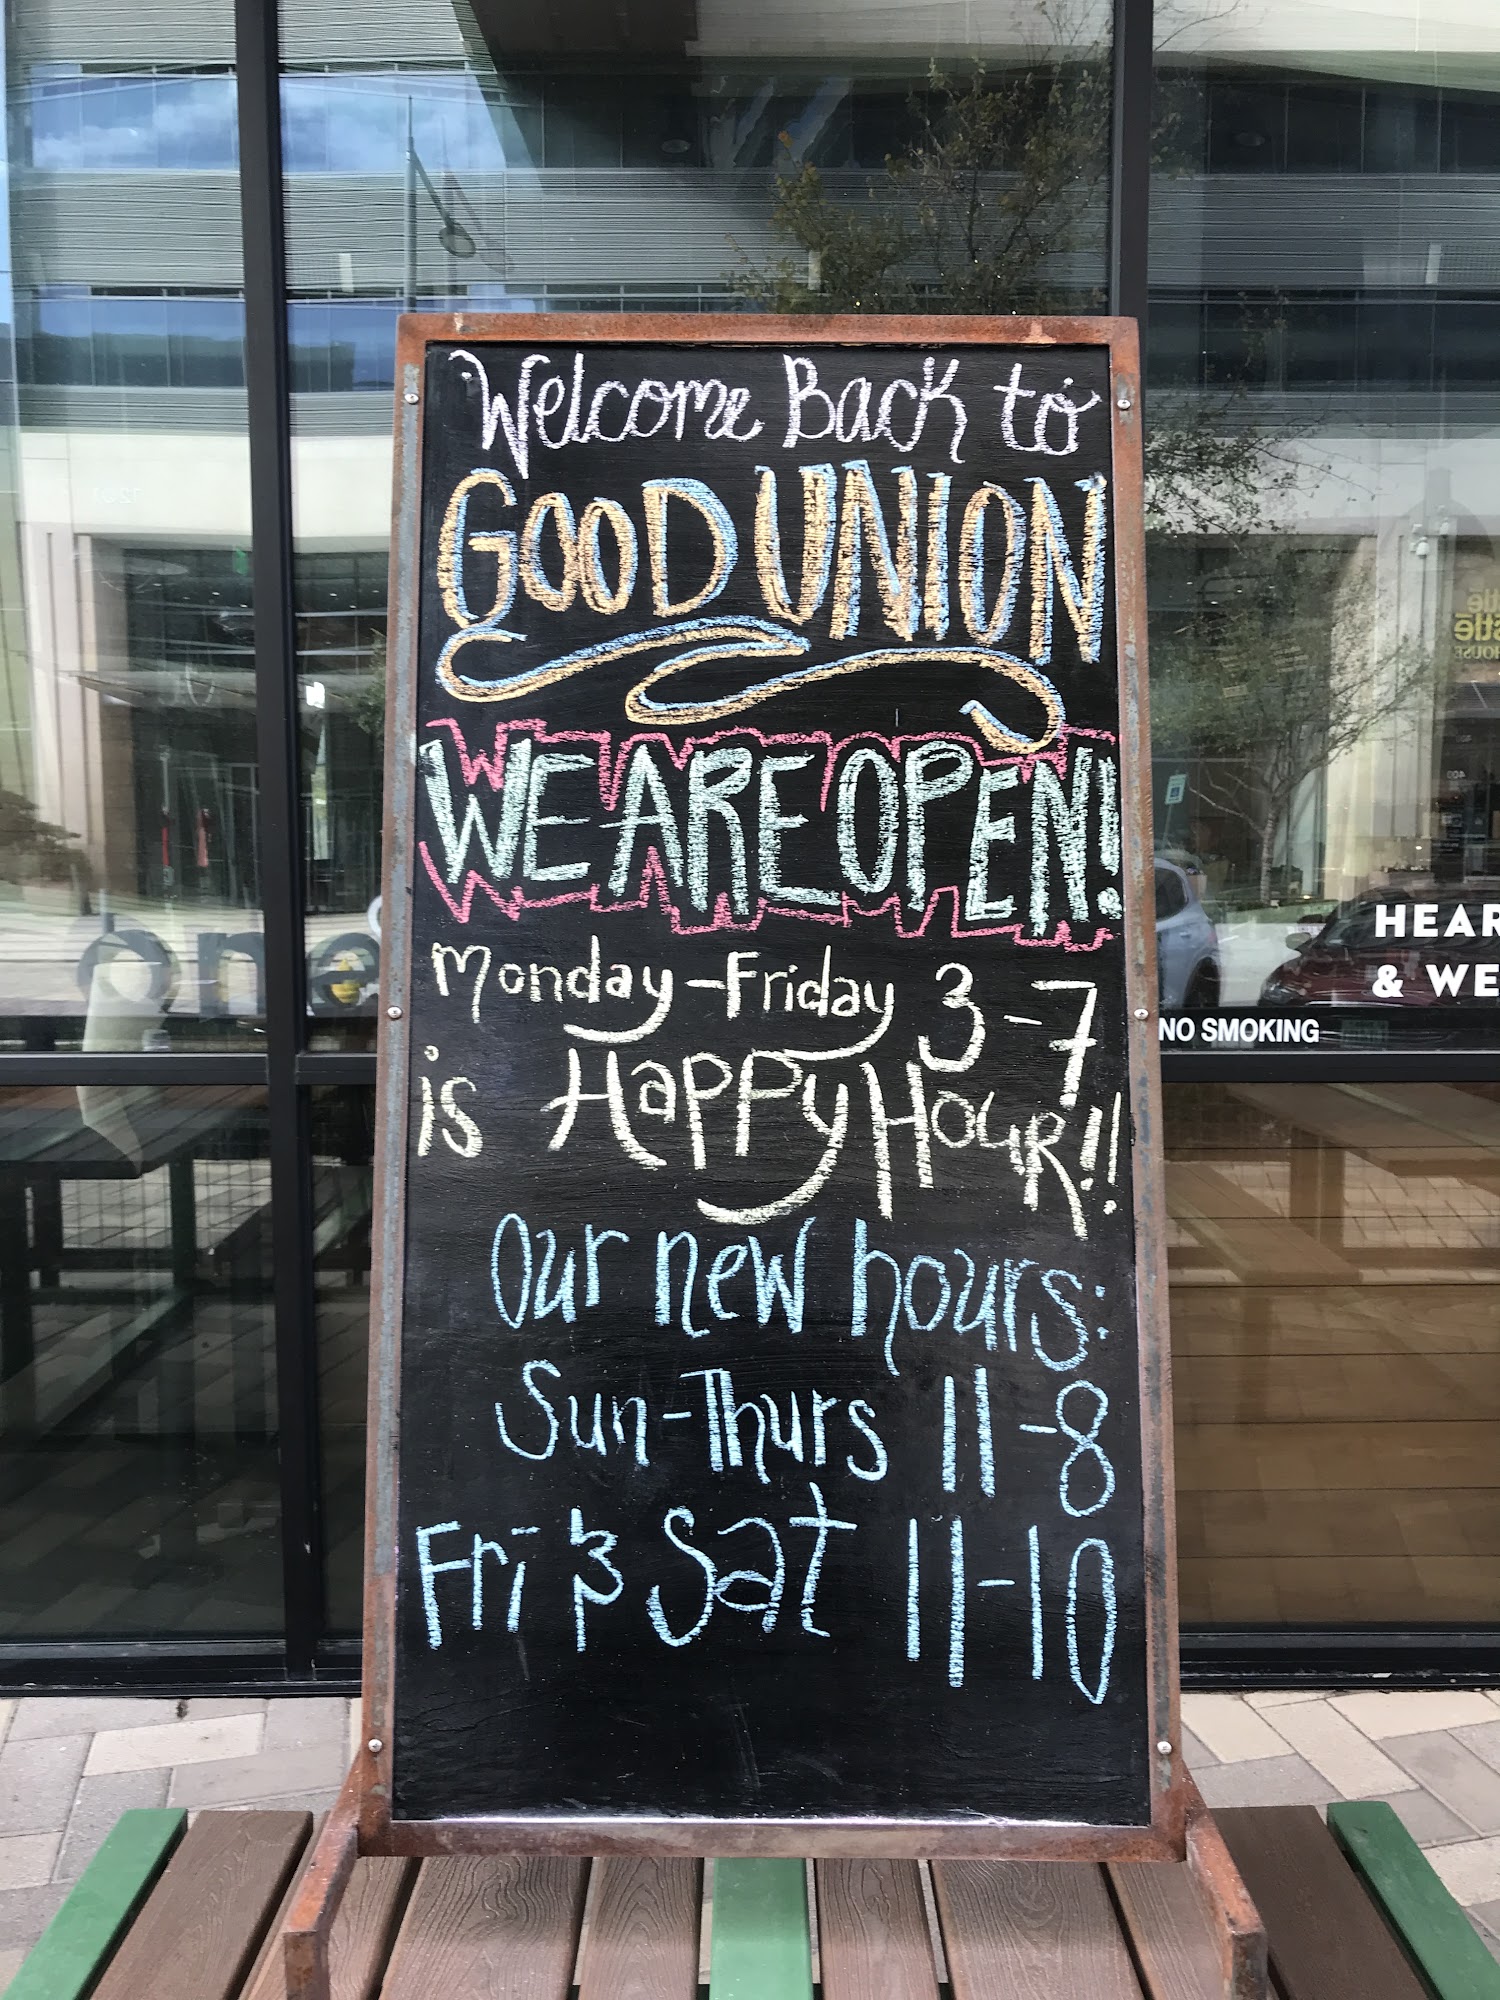 Welcome Back to
GOOD UNION
WE ARE OPEN!
Monday-Friday 3-7
is Happy Hour!!
Our new hours:
Sun-Thurs 11-8
Fri & Sat 11-10
HEAR
& WE
NO SMOKING
one